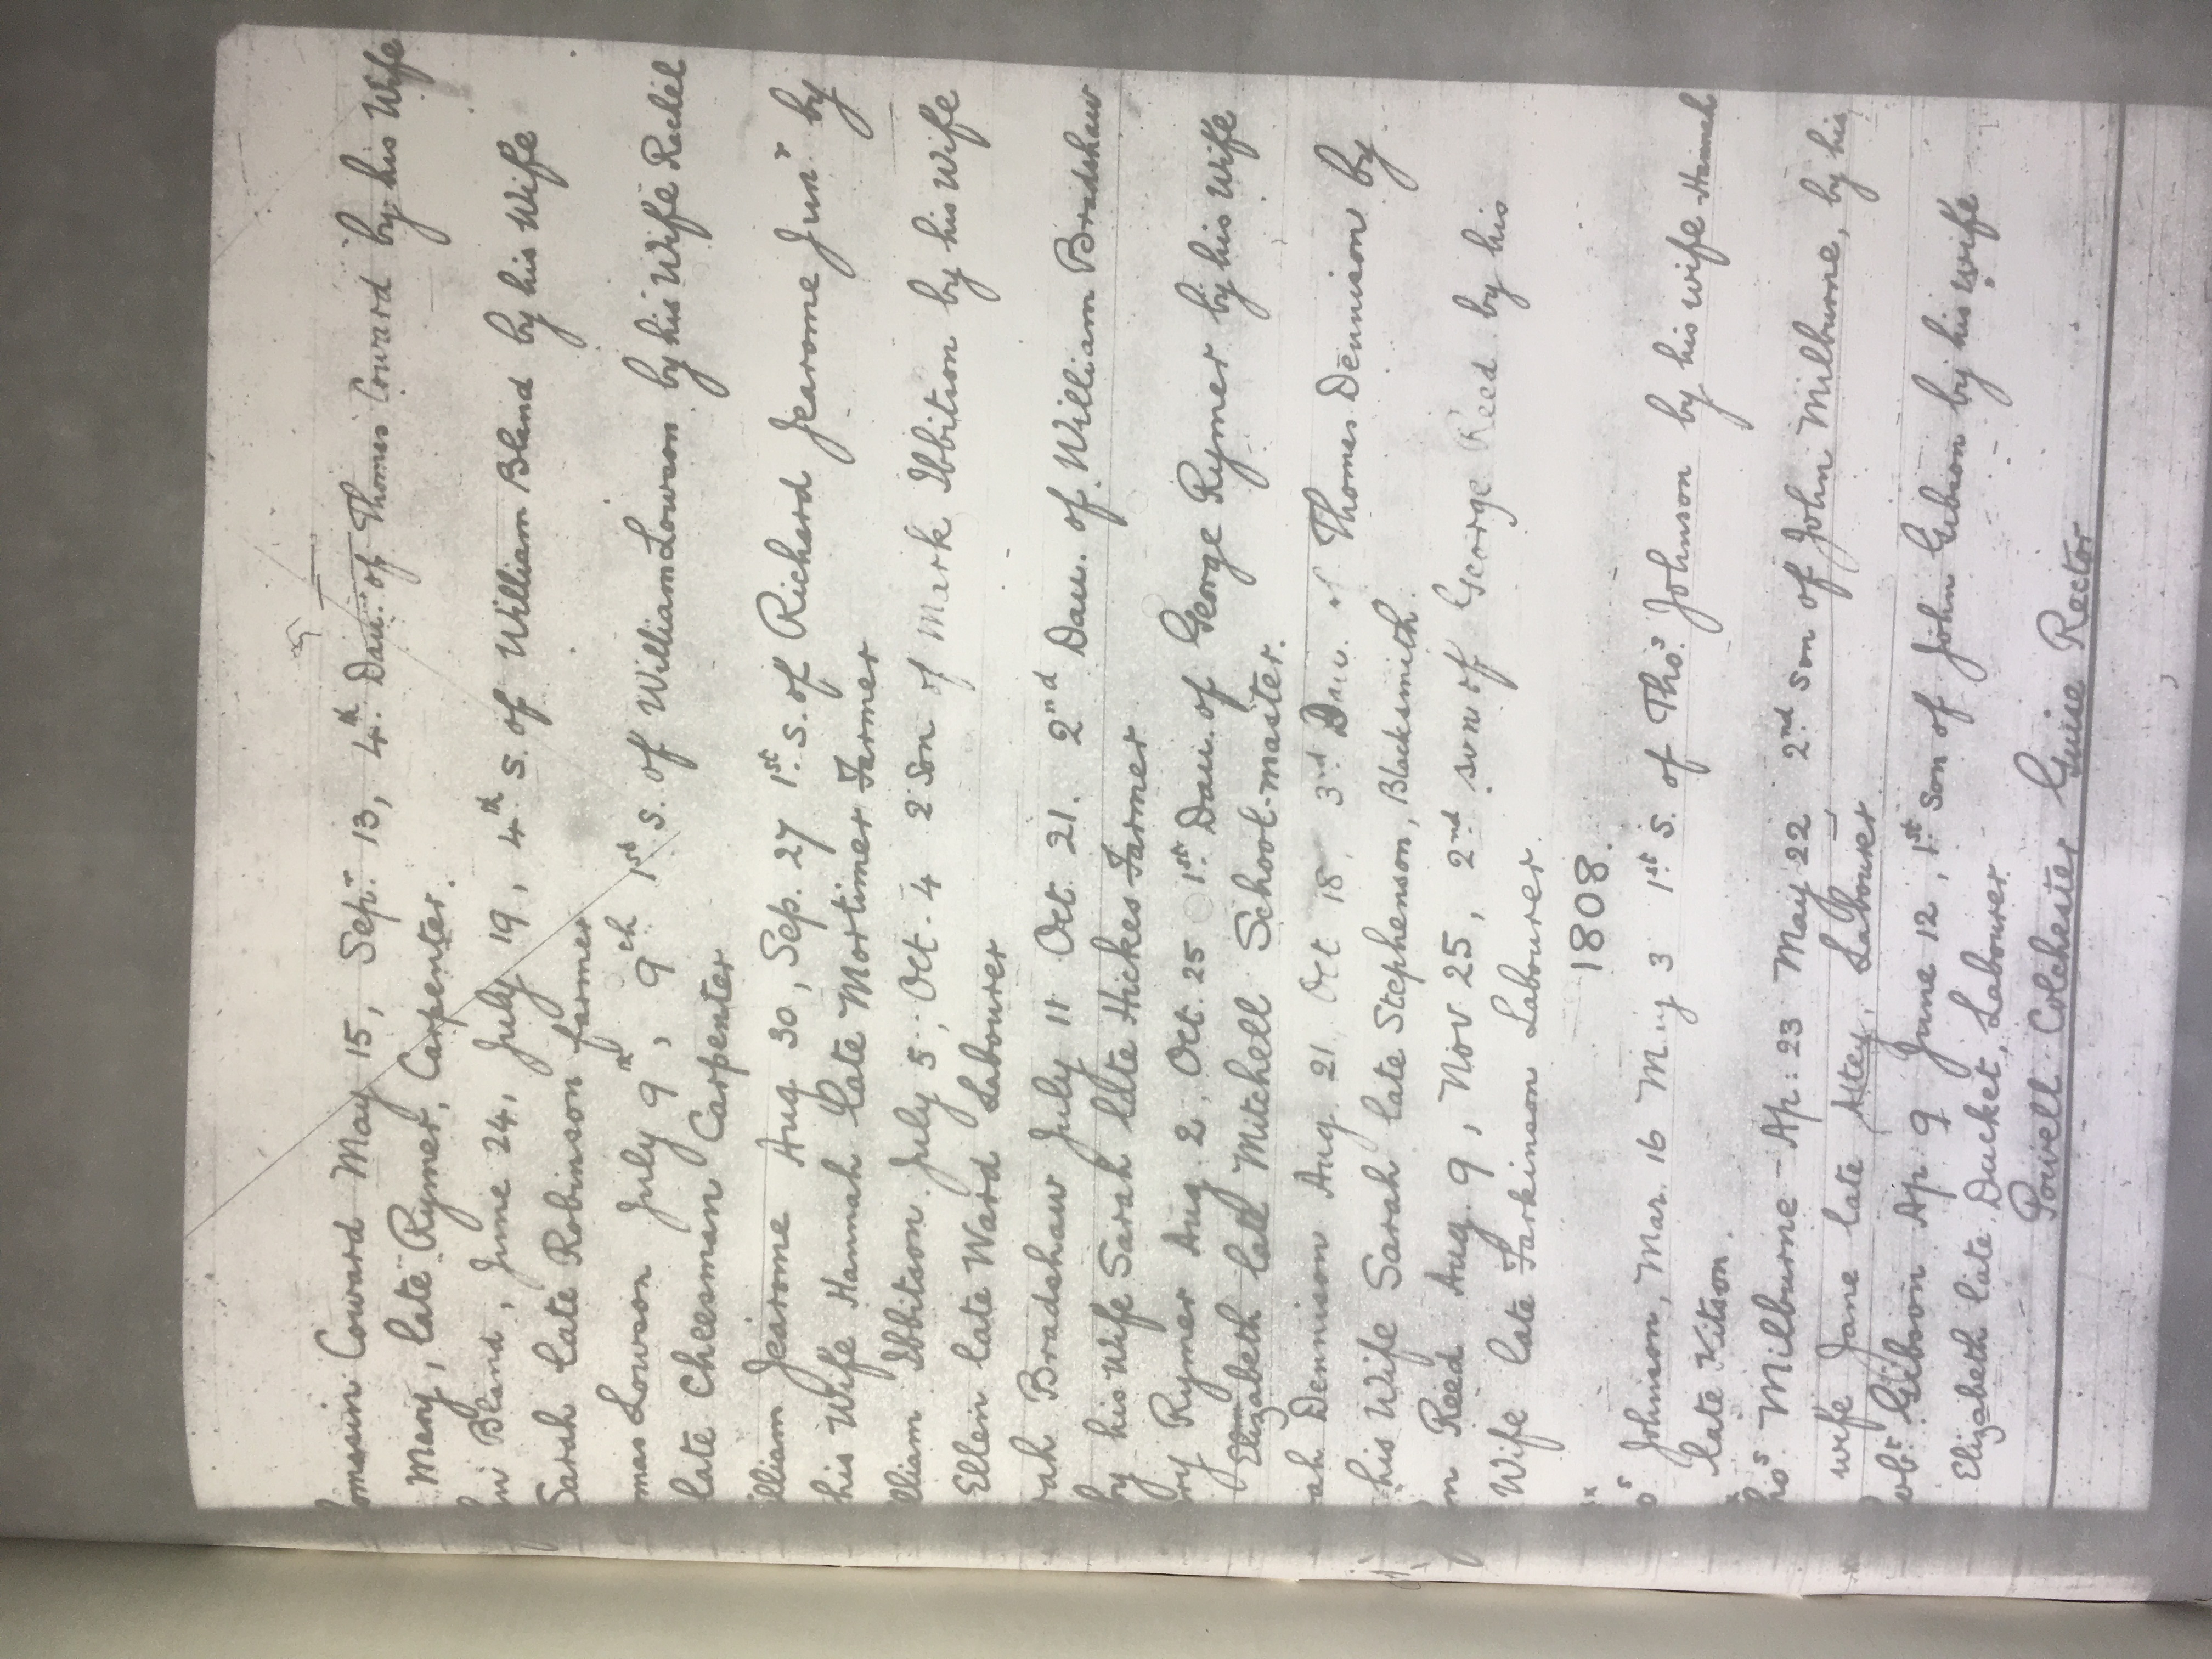 omasin Coward May 15, Sepr. 13, 4th Dau. of Thomas Coward by his Wife
Mary, late Rymer, Carpenter.
n Bland, June 24, July 19, 4th s. of William Bland by his Wife
Sarah late Robinson farmer
mas Lowson July 9th, 9th 1st s. of William Lowson by his Wife Rachel
late Cheesman Carpenter
illiam Jearome Aug 30, Sep. 27 1st. s. of Richard Jearome Junr by
his Wife Hannah late Mortimer Farmer
lliam Ibbitson July 5, Oct. 4 2 Son of Mark Ibbitson by his Wife
Ellen late Ward Labourer
ah Bradshaw July 11 Oct. 21. 2nd Dau. of William Bradshaw
by his Wife Sarah late Hickes Farmer
ry Rymer Aug. 2, Oct. 25 1st. Dau. of George Rymer by his Wife
Elizabeth late Mitchell School-master.
ah Dennison Aug. 21, Oct 18, 3rd Dau. of Thomas Dennison by
his Wife Sarah late Stephenson, Blacksmith
n Reed Aug. 9, Nov 25, 2nd son of George Reed by his
Wife late Farkinson Labourer.
1808.
os Johnson, Mar. 16 May 3 1st s. of Thos. Johnson by his wife Hannah
late Kitson.
hos Milburne Ap: 23 May 22 2nd son of John Milburne, by his
wife Jane late Attey, Labourer
obt Gibson Ap. 9 June 12, 1st. Son of John Gibson by his wife
Elizabeth late Ducket, Labourer.
Powell Colchester Guise Rector